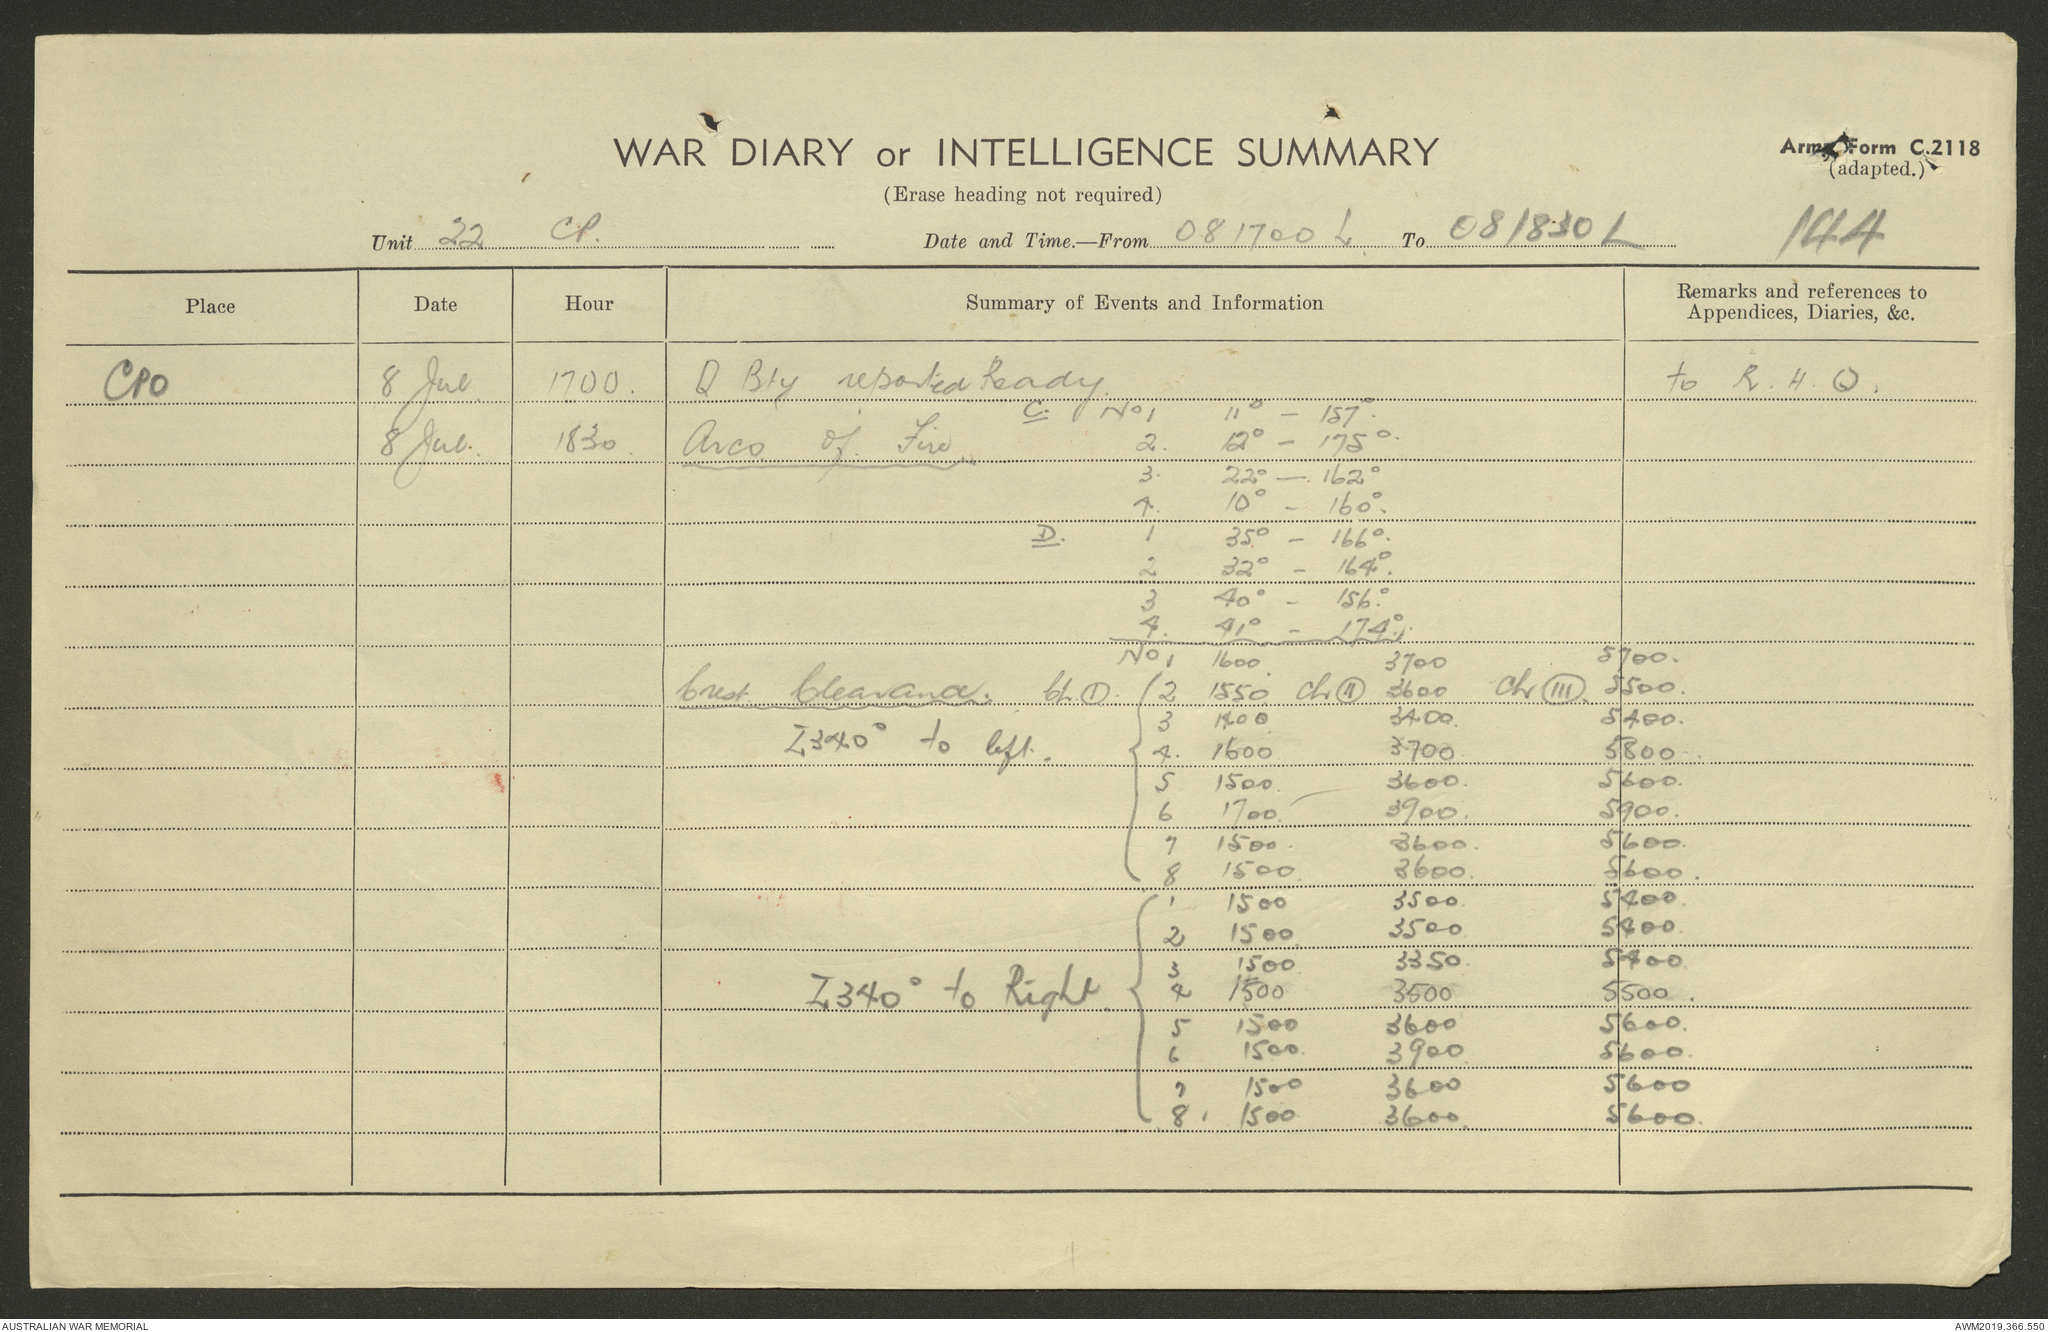 WAR DIARY or INTELLIGENCE SUMMARY
Army Form C.2118
(adapted.)
(Erase heading not required)
Unit 22 CP. Date and Time.—From 081700 L To 081830 L 144
Place Date Hour Summary of Events and Information Remarks and references to Appendices, Diaries, &c.
CPO 8 Jul 1700. Q Bty reported Ready. to R.H.Q.
C. No 1 11° - 157°.
8 Jul. 1830. Arcs of Fire 2. 12° - 175°.
3. 22° - 162°
4. 10° - 160°.
D. 1 35° - 166°.
2 32° - 164°.
3 40° - 156°.
4. 41° - 174°.
No 1 1600. 3700 5700.
Crest Clearance. Ch I. 2 1550 Ch II 3600 Ch III. 5500.
3 1400 3400. 5400.
Z340° to left. 4. 1600 3700. 5800.
5 1500. 3600. 5600.
6 1700. 3900. 5900.
7 1500. 3600. 5600.
8 1500 3600. 5600.
1 1500 3500. 5400.
2 1500 3500 5400.
3 1500 3350. 5400
Z340° to Right. 4 1500 3500 5500.
5 1500 3600 5600.
6 1500. 3900 5600.
7 1500 3600 5600
8. 1500 3600. 5600.
AUSTRALIAN WAR MEMORIAL
AWM2019.366.550